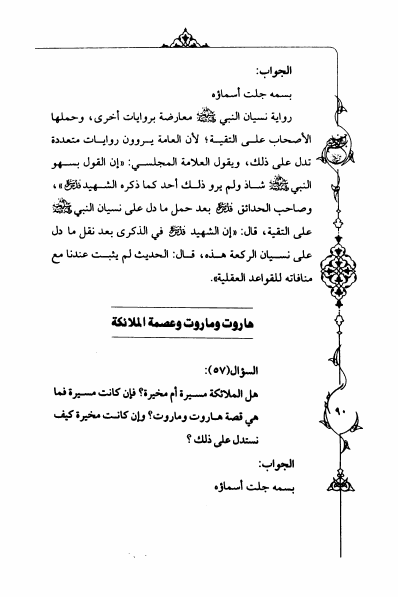 الجواب:
بسمه جلت أسماؤه
رواية نسيان النبي ﷺ معارضة بروايات أخرى، وحملها
الأصحاب على التقية؛ لأن العامة يروون روايات متعددة
تدل على ذلك، ويقول العلامة المجلسي: «إن القول بسهو
النبي ﷺ شاذ ولم يرو ذلك أحد كما ذكره الشهيد قدس سره»،
وصاحب الحدائق قدس سره بعد حمل ما دل على نسيان النبي ﷺ
على التقية، قال: «إن الشهيد قدس سره في الذكرى بعد نقل ما دل
على نسيان الركعة هذه، قال: الحديث لم يثبت عندنا مع
منافاته للقواعد العقلية».
هاروت وماروت وعصمة الملائكة
السؤال(٥٧):
هل الملائكة مسيرة أم مخيرة؟ فإن كانت مسيرة فما
هي قصة هاروت وماروت؟ وإن كانت مخيرة كيف
نستدل على ذلك؟
٩٠
الجواب:
بسمه جلت أسماؤه